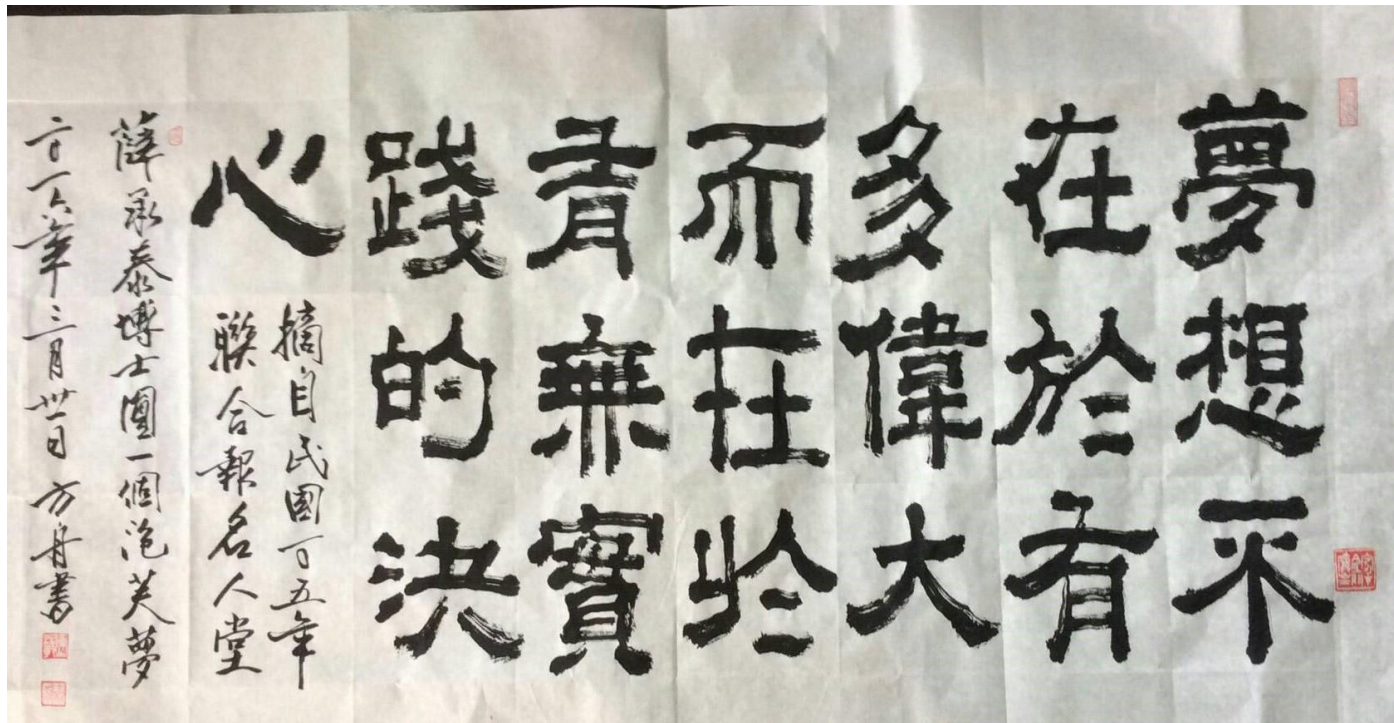 夢想不
在於有
多偉大
而在於
有無實
踐的決
心
摘自民國百五年
聯合報名人堂
薛承泰博士圓一個泡芙夢
二〇一六年三月卅一日 方舟書